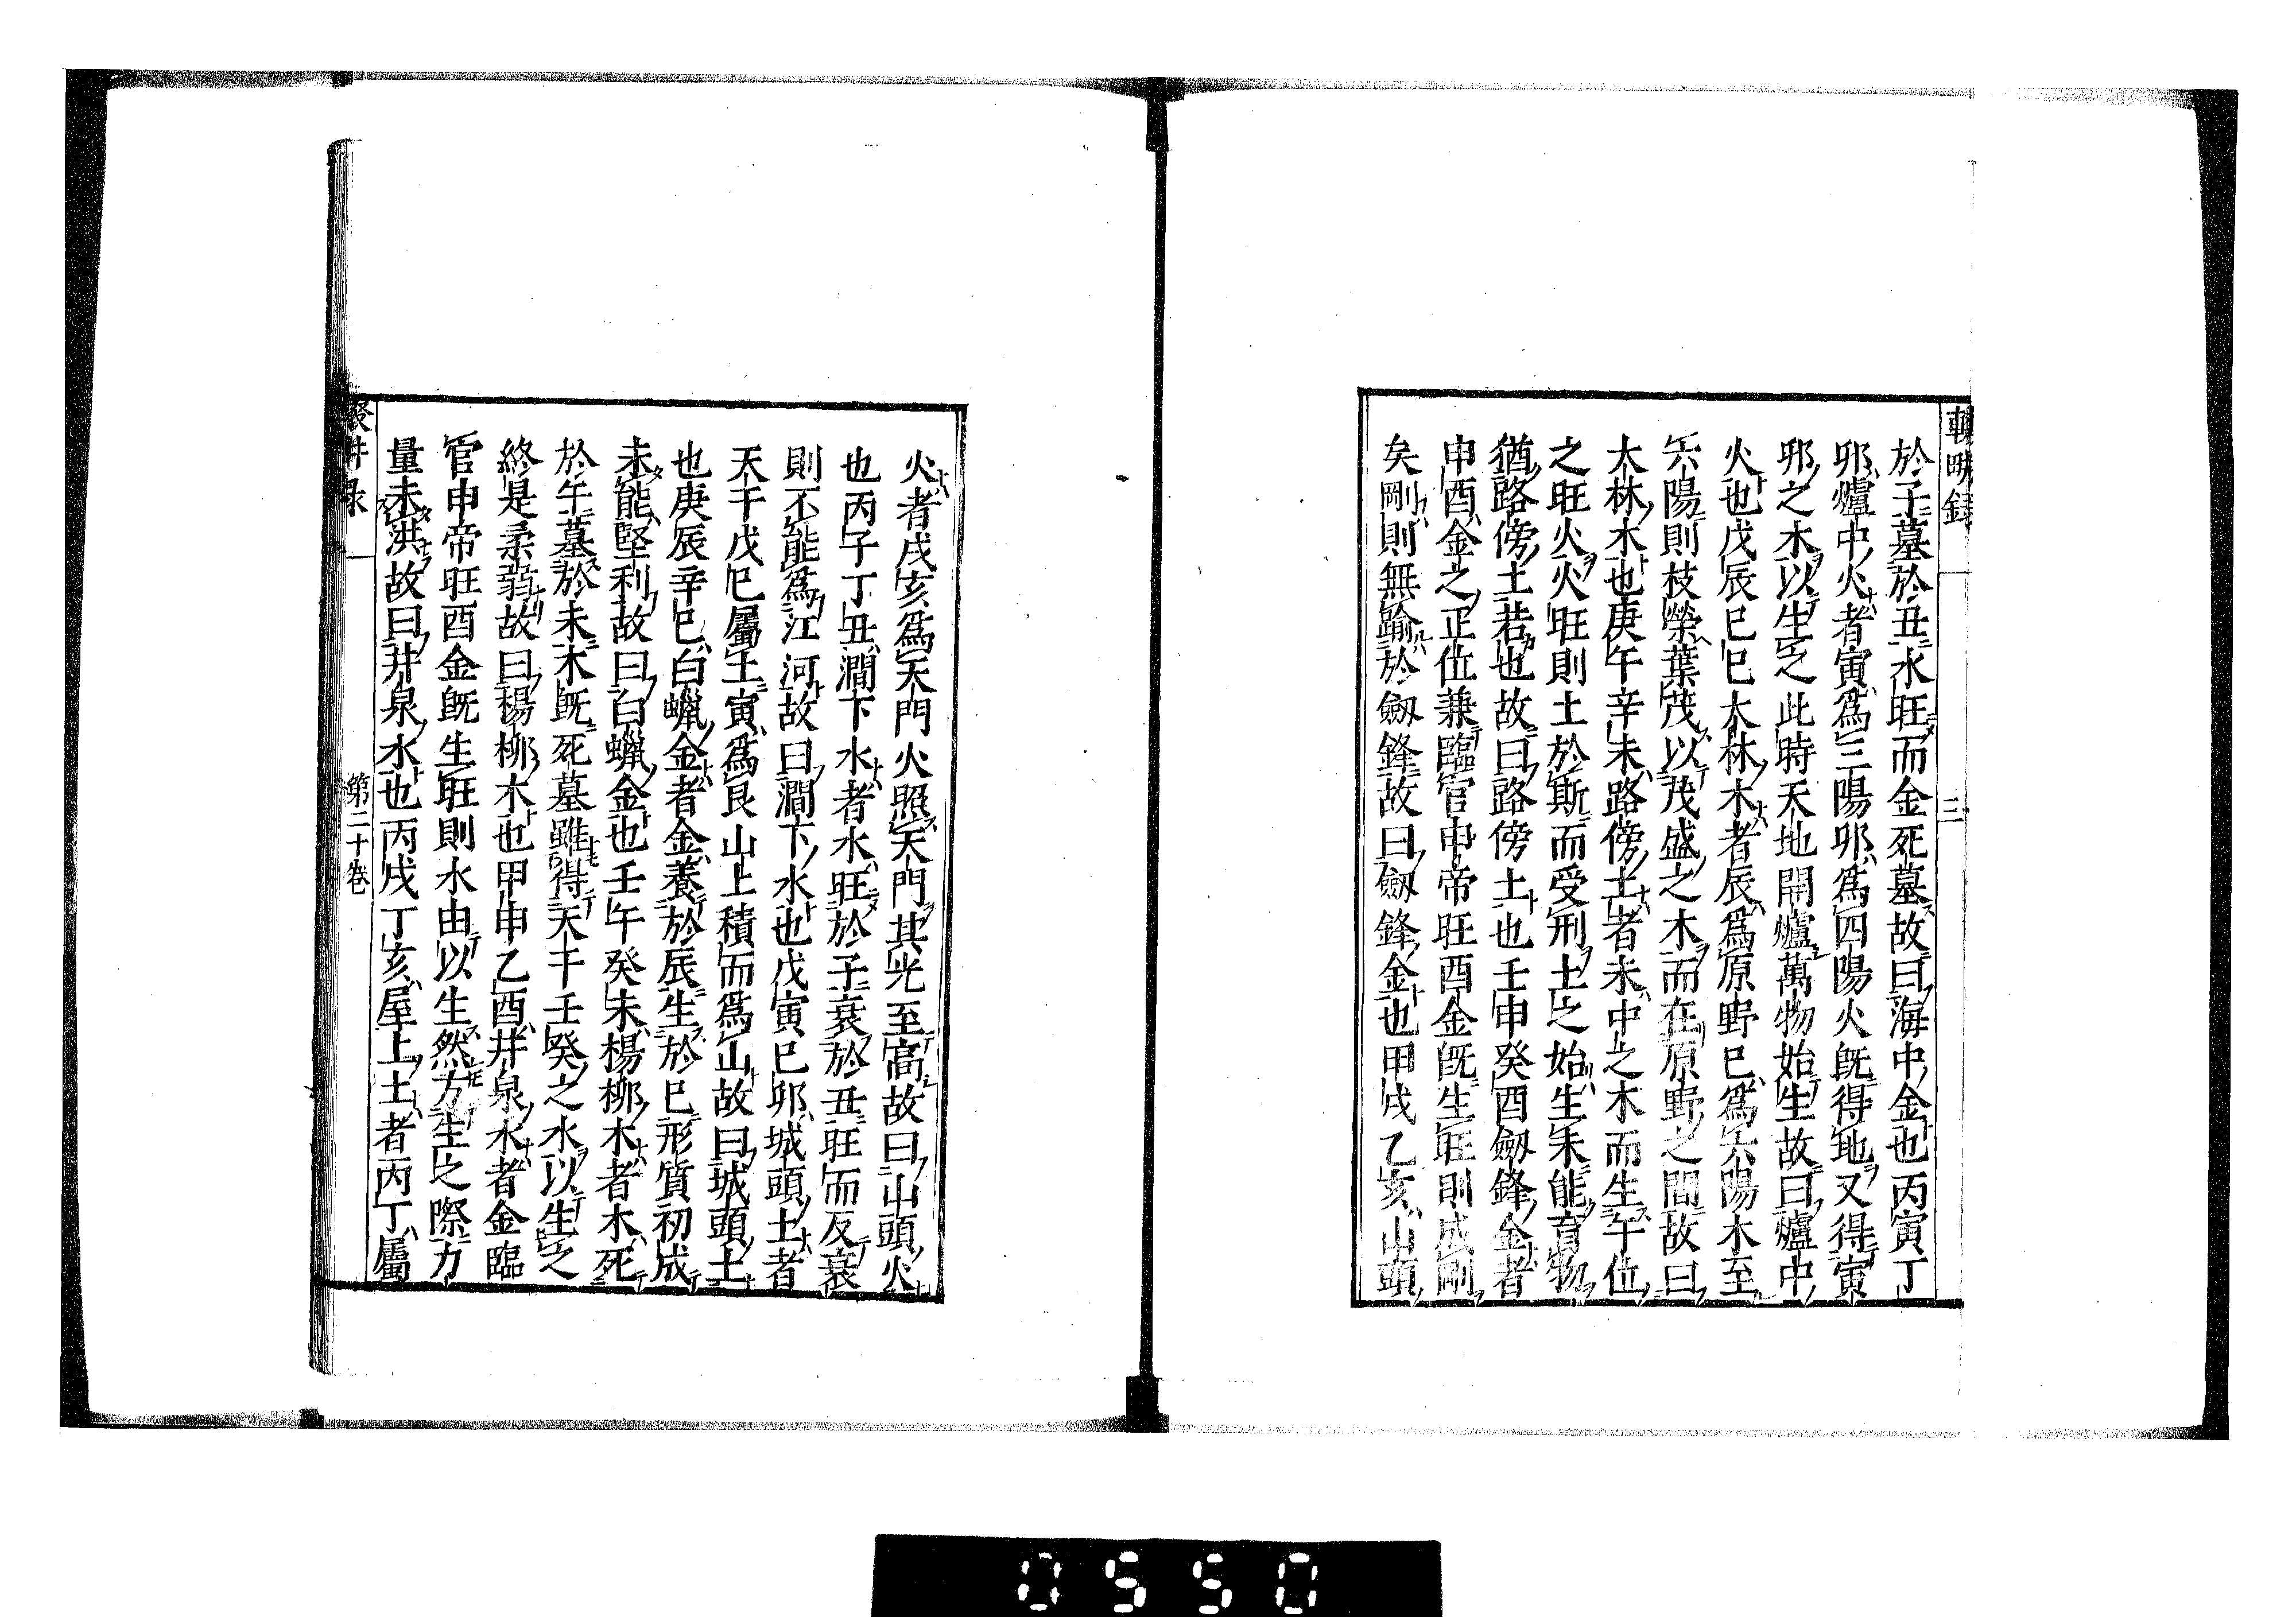 輟畊録
三
於子墓於丑水旺而金死墓故曰海中金也丙寅丁
卯爐中火者寅爲三陽卯爲四陽火既得地又得寅
卯之木以生之此時天地開爐萬物始生故曰爐中
火也戊辰己巳大林木者辰爲原野巳爲六陽木至
六陽則枝榮葉茂以茂盛之木而在原野之間故曰
大林木也庚午辛未路傍土者未中之木而生午位
之旺火火旺則土於斯而受刑土之始生未能育物
猶路傍土若也故曰路傍土也壬申癸酉劔鋒金者
申酉金之正位兼臨官申帝旺酉金既生旺則成剛
矣剛則無踰於劔鋒故曰劔鋒金也甲戌乙亥山頭
火者戌亥爲天門火照天門其光至高故曰山頭火
也丙子丁丑澗下水者水旺於子衰於丑旺而反衰
則不能爲江河故曰澗下水也戊寅己卯城頭土者
天干戊己屬土寅爲艮山土積而爲山故曰城頭土
也庚辰辛巳白蠟金者金養於辰生於巳形質初成
未能堅利故曰白蠟金也壬午癸未楊柳木者木死
於午墓於未木既死墓雖得天干壬癸之水以生之
終是柔弱故曰楊柳木也甲申乙酉井泉水者金臨
官申帝旺酉金既生旺則水由以生然方生之際力
量未洪故曰井泉水也丙戌丁亥屋上土者丙丁屬
第二十卷
0550